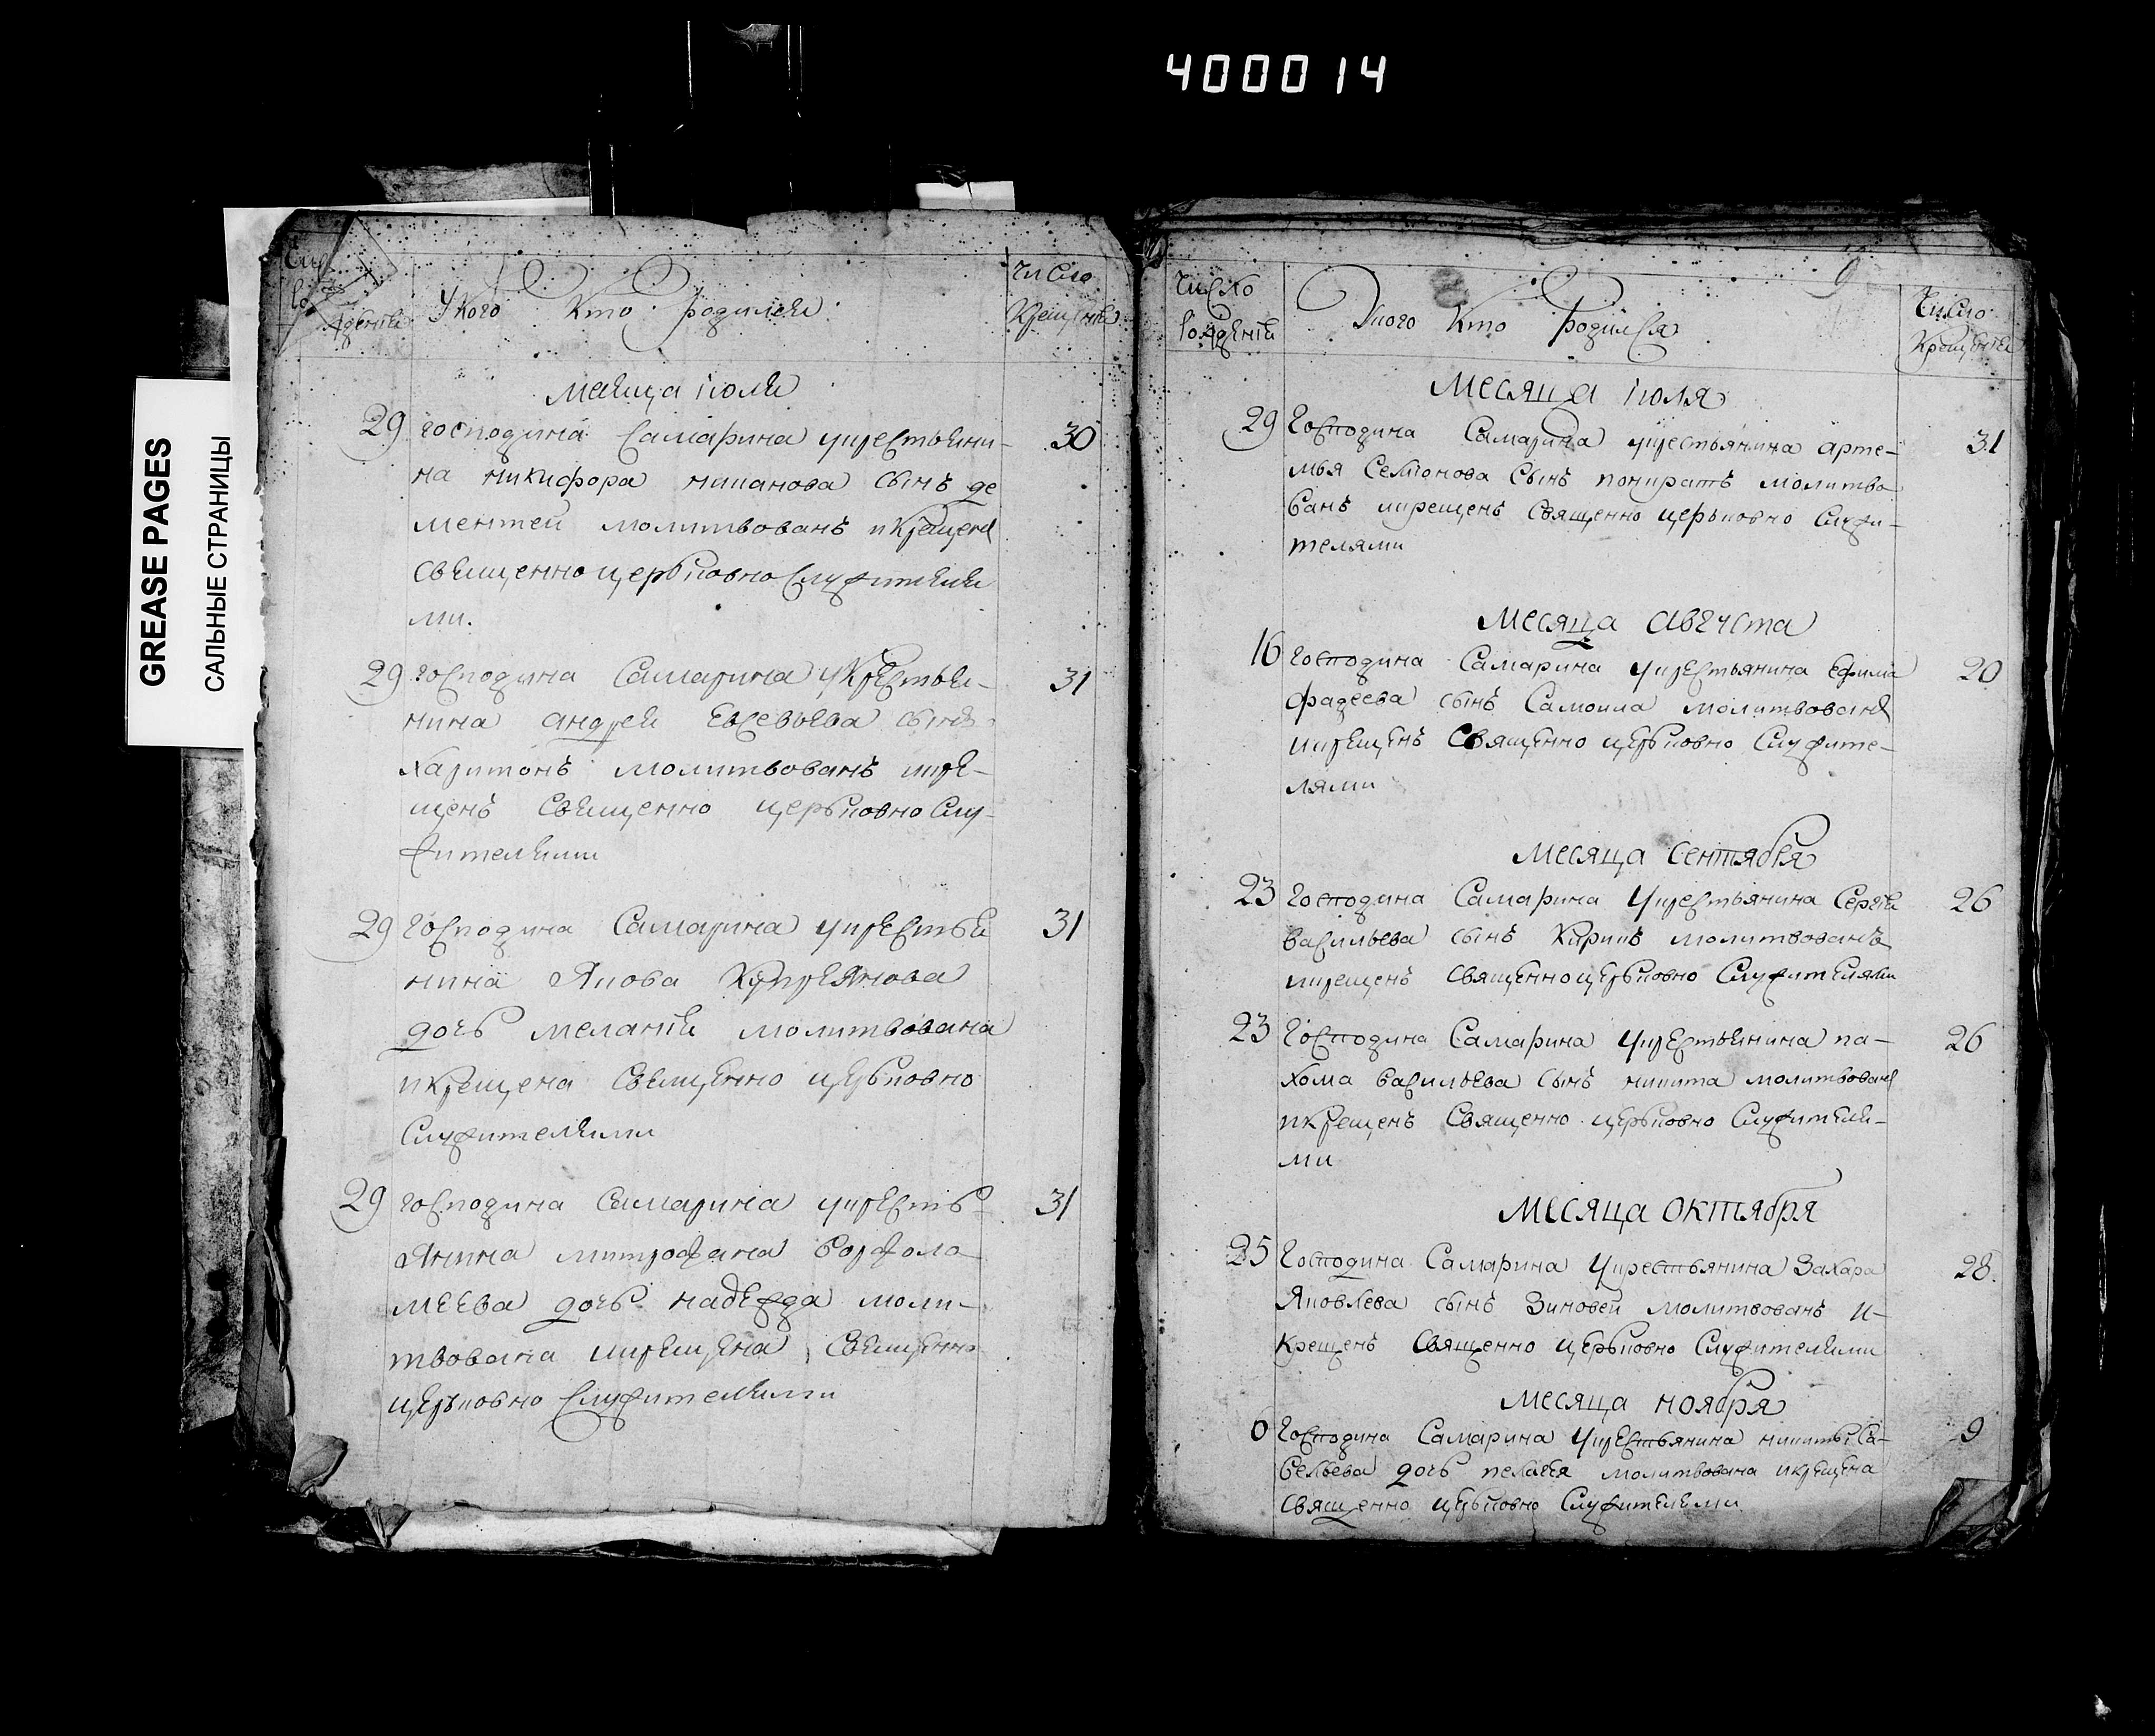 400014
GREASE PAGES
САЛЬНЫЕ СТРАНИЦЫ
У кого Кто родился
Число
Крещения
месяца июля
29 господина Самарина укрестьяни- 30
на никифора иванова сынъ де
ментей молитвованъ икрещенъ
священно церьковно служителя
ми.
29 господина Самарина укрестья- 31
нина андрея Евсевьева сынъ
харитонъ молитвованъ икре-
щенъ священно церьковно слу-
жителями
29 господина Самарина укрестья 31
нина Якова Купреянова
дочь мелания молитвована
икрещена священно церьковно
служителями
29 господина Самарина укресть- 31
янина митрофана Ворфоло
меева дочь надежда моли-
твована икрещена священно
церьковно служителями
Число
рождений
Укого Кто родился
9
Число
Крещения
Месяца июля
29 Господина Самарина укрестьянина арте- 31
мья Семионова сынъ молитво
ванъ икрещенъ священно церьковно служи-
телями
Месяца августа
16 Господина Самарина укрестьянина Ефима 20
фадеева сынъ Самоила молитвованъ
икрещенъ священно церьковно служите-
лями
Месяца сентября
23 Господина Самарина укрестьянина Сергея 26
васильева сынъ Кирикъ молитвованъ
икрещенъ священно церьковно служителями
23 Господина Самарина укрестьянина па- 26
хома васильева сынъ никита молитвованъ
икрещенъ священно церьковно служителя-
ми
Месяца октября
25 Господина Самарина укрестьянина Захара 28.
Яковлева сынъ Зиновей молитвованъ и-
крещенъ священно церьковно служителями
Месяца ноября
6 Господина Самарина укрестьянина никиты Са- 9
вельева дочь пелагея молитвована икрещена
священно церьковно служителями